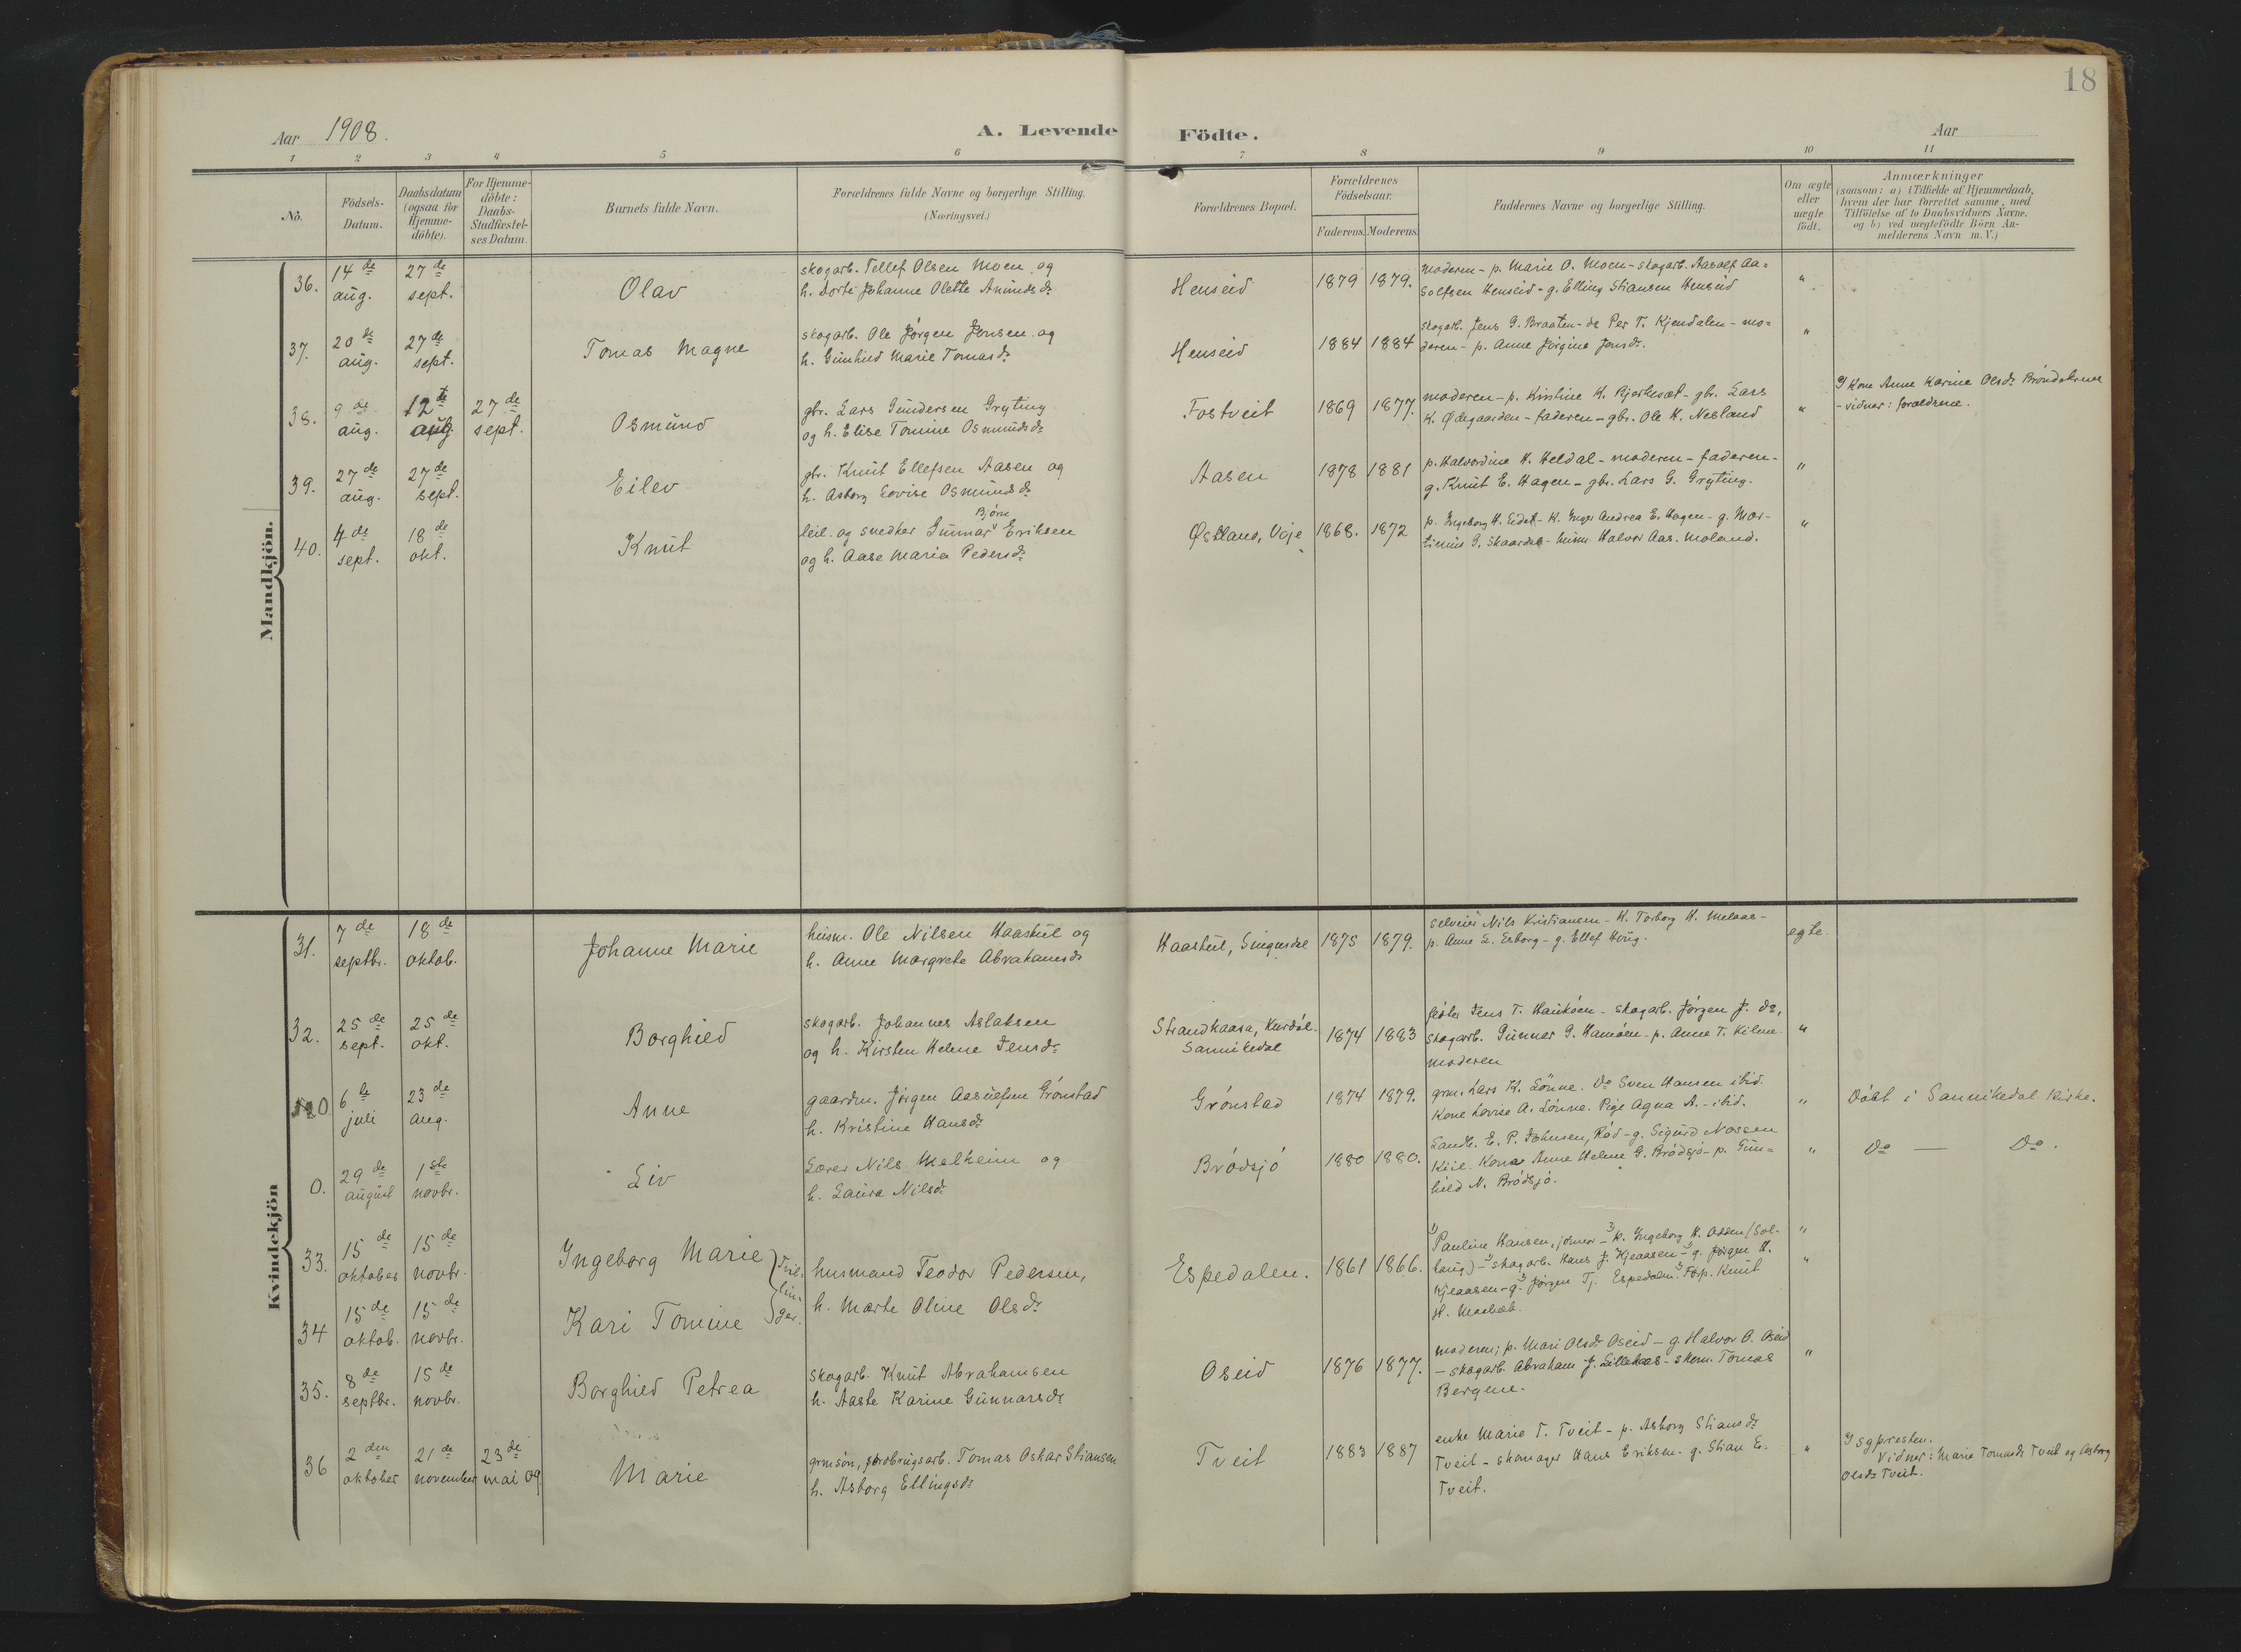 18
Aar 1908.
A. Levende Födte.
Aar
1 2 3 4 5 6 7 8 9 10 11
No.
Födsels-
Datum.
Daabsdatum
(ogsaa for
Hjemme-
döbte).
For Hjemme-
döbte:
Daabs-
Stadfæstel-
ses Datum.
Barnets fulde Navn.
Forældrenes fulde Navne og borgerlige Stilling.
(Næringsvei.)
Forældrenes Bopæl.
Forældrenes
Födselsaar.
Faderens. Moderens.
Faddernes Navne og borgerlige Stilling.
Om ægte
eller
uægte
födt.
Anmærkninger
(saasom: a) i Tilfælde af Hjemmedaab,
hvem der har forrettet samme, med
Tilföielse af to Daabsvidners Navne,
og b) ved uægtefödte Börn An-
melderens Navn m. V.)
Mandkjön.
36. 14de aug. 27de sept. Olav
skogarb. Tellef Olsen Moen og
h. Dorte Johanne Olette Amundsdr
Henseid 1879 1879.
moderen - p. Marie O. Moen - skogarb. Aasolf Aa=
solfsen Henseid - g. Elling Stiansen Henseid "
37. 20de aug. 27de sept. Tomas Magne
skogarb. Ole Jørgen Jensen og
h. Gunhild Marie Tomasdr
Henseid 1884 1884
skogarb. Jens G. Braaten - do Per T. Kjendalen - mo=
deren - p. Anne Jørgine Jensdr. "
38. 9de aug. 12te aug. 27de sept. Osmund
gbr. Lars Gundersen Gryting
og h. Elise Tomine Osmundsdr
Fostveit 1869 1877.
moderen - p. Kristine K. - gbr. Lars
K. Ødegaarden - faderen - gbr. Ole K. Nesland "
Kone Anne Karine Olsdr
- vidner: forældrene.
39. 27de aug. 27de sept. Eilev
gbr. Knut Ellefsen Aasen og
h. Asborg Lovise Osmundsdr
Aasen 1878 1881
p. Halvordine H. Heldal - moderen - faderen -
g. Knut E. Hagen - gbr. Lars G. Gryting. "
40. 4de sept. 18de okt. Knut
Bjørn
leil. og snedker Gunnar Eriksen
og h. Aase Maria Pedersdr
Østland, Veje 1868. 1872
p. Ingeborg H. Eidet - K. Inger Andrea E. Hagen - g. Mar-
tinius G. - husm. Halvor Aas. Moland. "
Kvindekjön
31. 7de septbr. 18de oktob. Johanne Marie
husm. Ole Nilsen Haastul og
h. Anne Margrete Abrahamsdr
Haastul, 1875 1879.
selveier Nils Kristiansen - K. Torborg H. Melaas -
p. Anne E. Esborg - g. Ellef Haug. egte.
32. 25de sept. 25de okt. Borghild
skogarb. Johannes Aslaksen
og h. Kirsten Helene Jensdr
Sannikedal 1874 1883
Jens T. - skogarb. Jørgen J. do,
skogarb. Gunnar G. - p. Anne T. Kilene
moderen "
0 6te juli 23de aug. Anne
gaardm. Jørgen Aasulfsen Grønstad
h. Kristine Hansdr
Grønstad 1874 1879.
grm. Lars K. Lønne. Do Sven Hansen ibid.
Kone Lovise A. Lønne. Pige Agna A. - ibid. "
Døbt i Sannikedal Kirke.
0. 29de august 1ste novbr. Liv
Lærer Nils Melheim og
h. Laura Nilsdr
Brødsjø 1880 1880.
Landh. E. P. Johnsen, - g. Sigurd Nossen
Kiil. Kone Anne Helene G. Brødsjø - p. Gun=
hild N. Brødsjø. "
Do — Do.
33. 15de oktober 15de novbr. Ingeborg Marie
Tvil-
lin-
ger.
husmand Teodor Pedersen,
h. Marte Oline Olsdr
Espedalen. 1861 1866.
Pauline Hansen, jomor - k. Ingeborg H. (Sol-
haug) - skogarb. Hans J. Kjeaasen - g. Jørgen H.
Kjeaasen - g. Jørgen Tj. Espedalen. Knut
H. " "
34 15de oktob. 15de novbr. Kari Tomine
35. 8de septbr. 15de novbr. Borghild Petrea
skogarb. Knut Abrahamsen
h. Aaste Karine Gunnarsdr
Oseid 1876 1877.
moderen; p. Mari Olsdr Oseid - g. Halvor O. Oseid
- skogarb. Abraham J. Lillekaas - skom. Tomas
Bergene. "
36 2den oktober 21de november 23de mai 09. Marie
grmsøn, Tomas Oskar Stiansen
h. Asborg Ellingsdr
Tveit 1883 1887
enke Marie T. Tveit - p. Asborg Stiansdr
Tveit - skomager Hans Eriksen - g. Stian E.
Tveit. "
Sgpresten.
Vidner: Marie Tomasdr Tveit og Asborg
Olsdr Tveit.